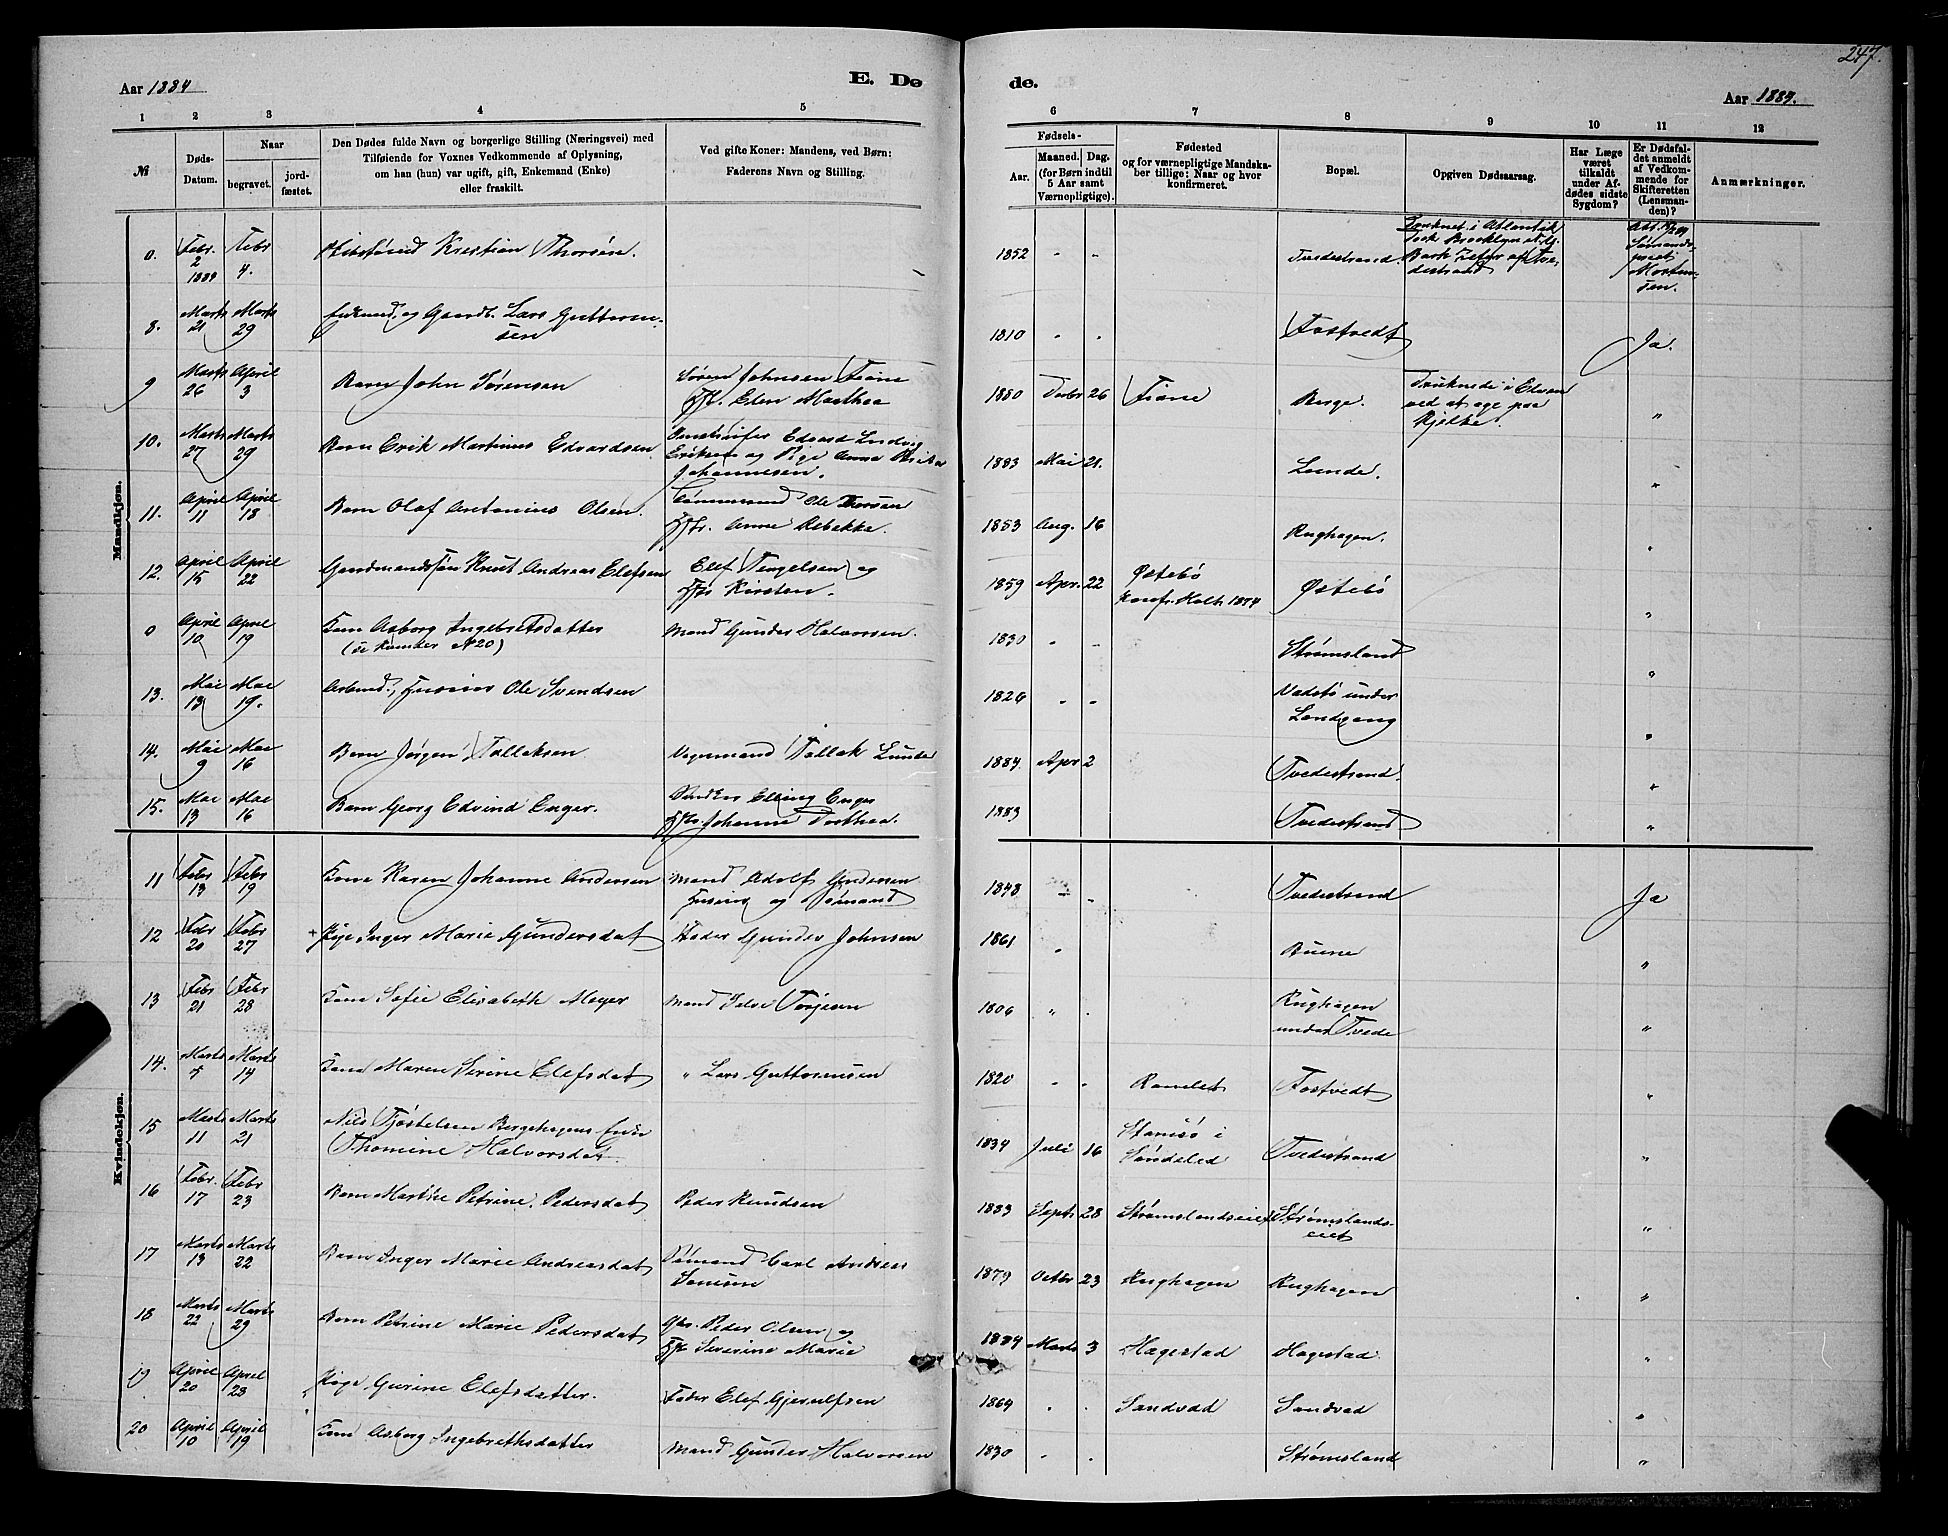 247.
Aar 1884
E. Dø
de.
Aar 1884.
1 2 3 4 5 6 7 8 9 10 11 12
№
Døds-
Datum.
Naar
begravet.
jord-
fæstet.
Den Dødes fulde Navn og borgerlige Stilling (Næringsvei) med
Tilføiende for Voxnes Vedkommende af Oplysning,
om han (hun) var ugift, gift, Enkemand (Enke)
eller fraskilt.
Ved gifte Koner: Mandens, ved Børn:
Faderens Navn og Stilling.
Fødsels-
Aar.
Maaned. Dag.
(for Børn indtil
5 Aar samt
Værnepligtige).
Fødested
og for værnepligtige Mandska-
ber tillige: Naar og hvor
konfirmeret.
Bopæl.
Opgiven Dødsaarsag.
Har Læge
været
tilkaldt
under Af-
dødes sidste
Sygdom?
Er Dødsfal-
det anmeldt
af Vedkom-
mende for
Skifteretten
(Lensman-
den)?
Anmærkninger.
Mandkjøn.
0. Febr. 2 1884 Febr 4. Kristian Thorsøn. 1852 " " Tvedestrand. Druknet i Atlantik
Dock Brooklyn N.Y.
Bark
destrand
Att.
Sømands
præst
Morten-
sen.
8. Marts 21 Marts 29 Enkemd. og Gaardb. Lars Guttorm-
sen 1810 " " Fostvedt Ja.
9 Marts 26 April 3 Barn John Sørensen Søren Johnsen Fiane
Hst. Elen Marthea 1880 Decbr 26 Fiane Berge. Druknede i Elven
ved at age paa
Kjelke. "
10. Marts 27 Marts 29 Barn Erik Martinus Edvardsen. Edvard Ludvig
Eriksen og Pige Anna
Johannesen. 1883 Mai 21. Lunde. "
11. April 11 April 18 Barn Olaf Antonius Olsen. Sømand Ole Thorsen
Hst. Anne Rebekke. 1853 Aug. 16 Rughagen. "
12. April 15 April 22 Gaardmandssøn Knut Andreas Elefsen Elef Tengelsen og
Hst Kirsten. 1859 Apr. 22 Østebø
Konf. Holt 1874 Østebø "
0 April 10 April 19 Kone Asborg Ingebretsdatter
(se Kvinder № 20) Mand Gunder Halvorsen. 1830 " " Strømsland "
13. Mai 13 Mai 19. Arbmd., Husmd Ole Svendsen 1826 " " Vadsbø under
Landvang "
14. Mai 9 Mai 16 Barn Jørgen Tallaksen Vognmand Tallak Lunde 1884. Apr 2 Tvedestrand. "
15. Mai 13 Mai 16 Barn Georg Edvind Enger. Snedker Elling Enger
Hst. Johanne Dorthea. 1883 Tvedestrand "
Kvindekjøn.
11 Febr 13 Febr 19 Kone Karen Johanne Andersen Mand Adolf Gundersen
Husm og Sømand 1848 " " Tvedestrand Ja
12 Febr 20 Febr 27 + Pige Inger Marie Gundersdat Fader Gunder Johnsen 1861 " Buene "
13 Febr 21 Febr 28 Kone Sofie Elisabeth Meyer Mand Terjesen 1806 " " Rughagen
under Tvede "
14. Marts 5 Marts 14 Kone Maren Serine Elefsdat " Lars Guttormsen 1820 " " Ramlet Fostvedt "
15 Marts 11 Marts 21 Nils Tjøstelsen Bergehagens Enke
Thomine Halvorsdat 1834 Juli 16 Stamsø i
Søndeled Tvedestrand "
16 Febr. 17 Febr 23 Barn Marthe Petrine Pedersdat Peder Knudsen 1883 Septr 28 Strømslandseiet Strømslands-
eiet "
17 Marts 13 Marts 22 Barn Inger Marie Andreasdat Sømand Carl Andreas
1879 Octbr 23 Rughagen Rughagen "
18 Marts 22 Marts 29 Barn Petrine Marie Pedersdat Gbr. Peder Olsen og
Hst Severine Marie 1884 Marts 3 Hagestad Hagestad "
19 April 20 April 28 Pige Gurine Elefsdatter. Fader Elef Gjerulfsen 1864 " " Sandvad Sandvad "
20 April 10 April 19 Kone Asborg Ingebrethsdatter Mand Gunder Halvorsen 1830 " " Strømsland "